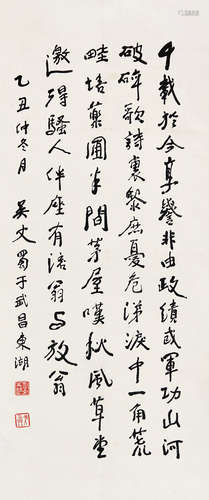 千載於今享譽非由政績或軍功山河
破碎歌詩裏黎庶憂危涕淚中一角荒
畦培藥圃半間茅屋嘆秋風草堂
邀得騷人伴座有涪翁与放翁
乙丑仲冬月 吳丈蜀于武昌東湖